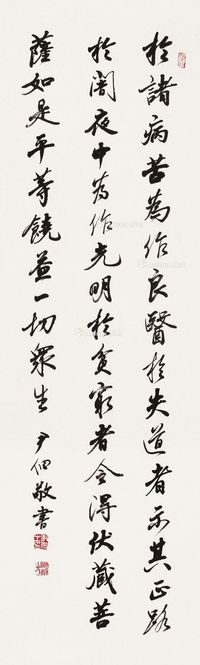 於諸病苦為作良醫於失道者示其正路
於闇夜中為作光明於貧窮者令得伏藏菩
薩如是平等饒益一切眾生 尹伯敬書